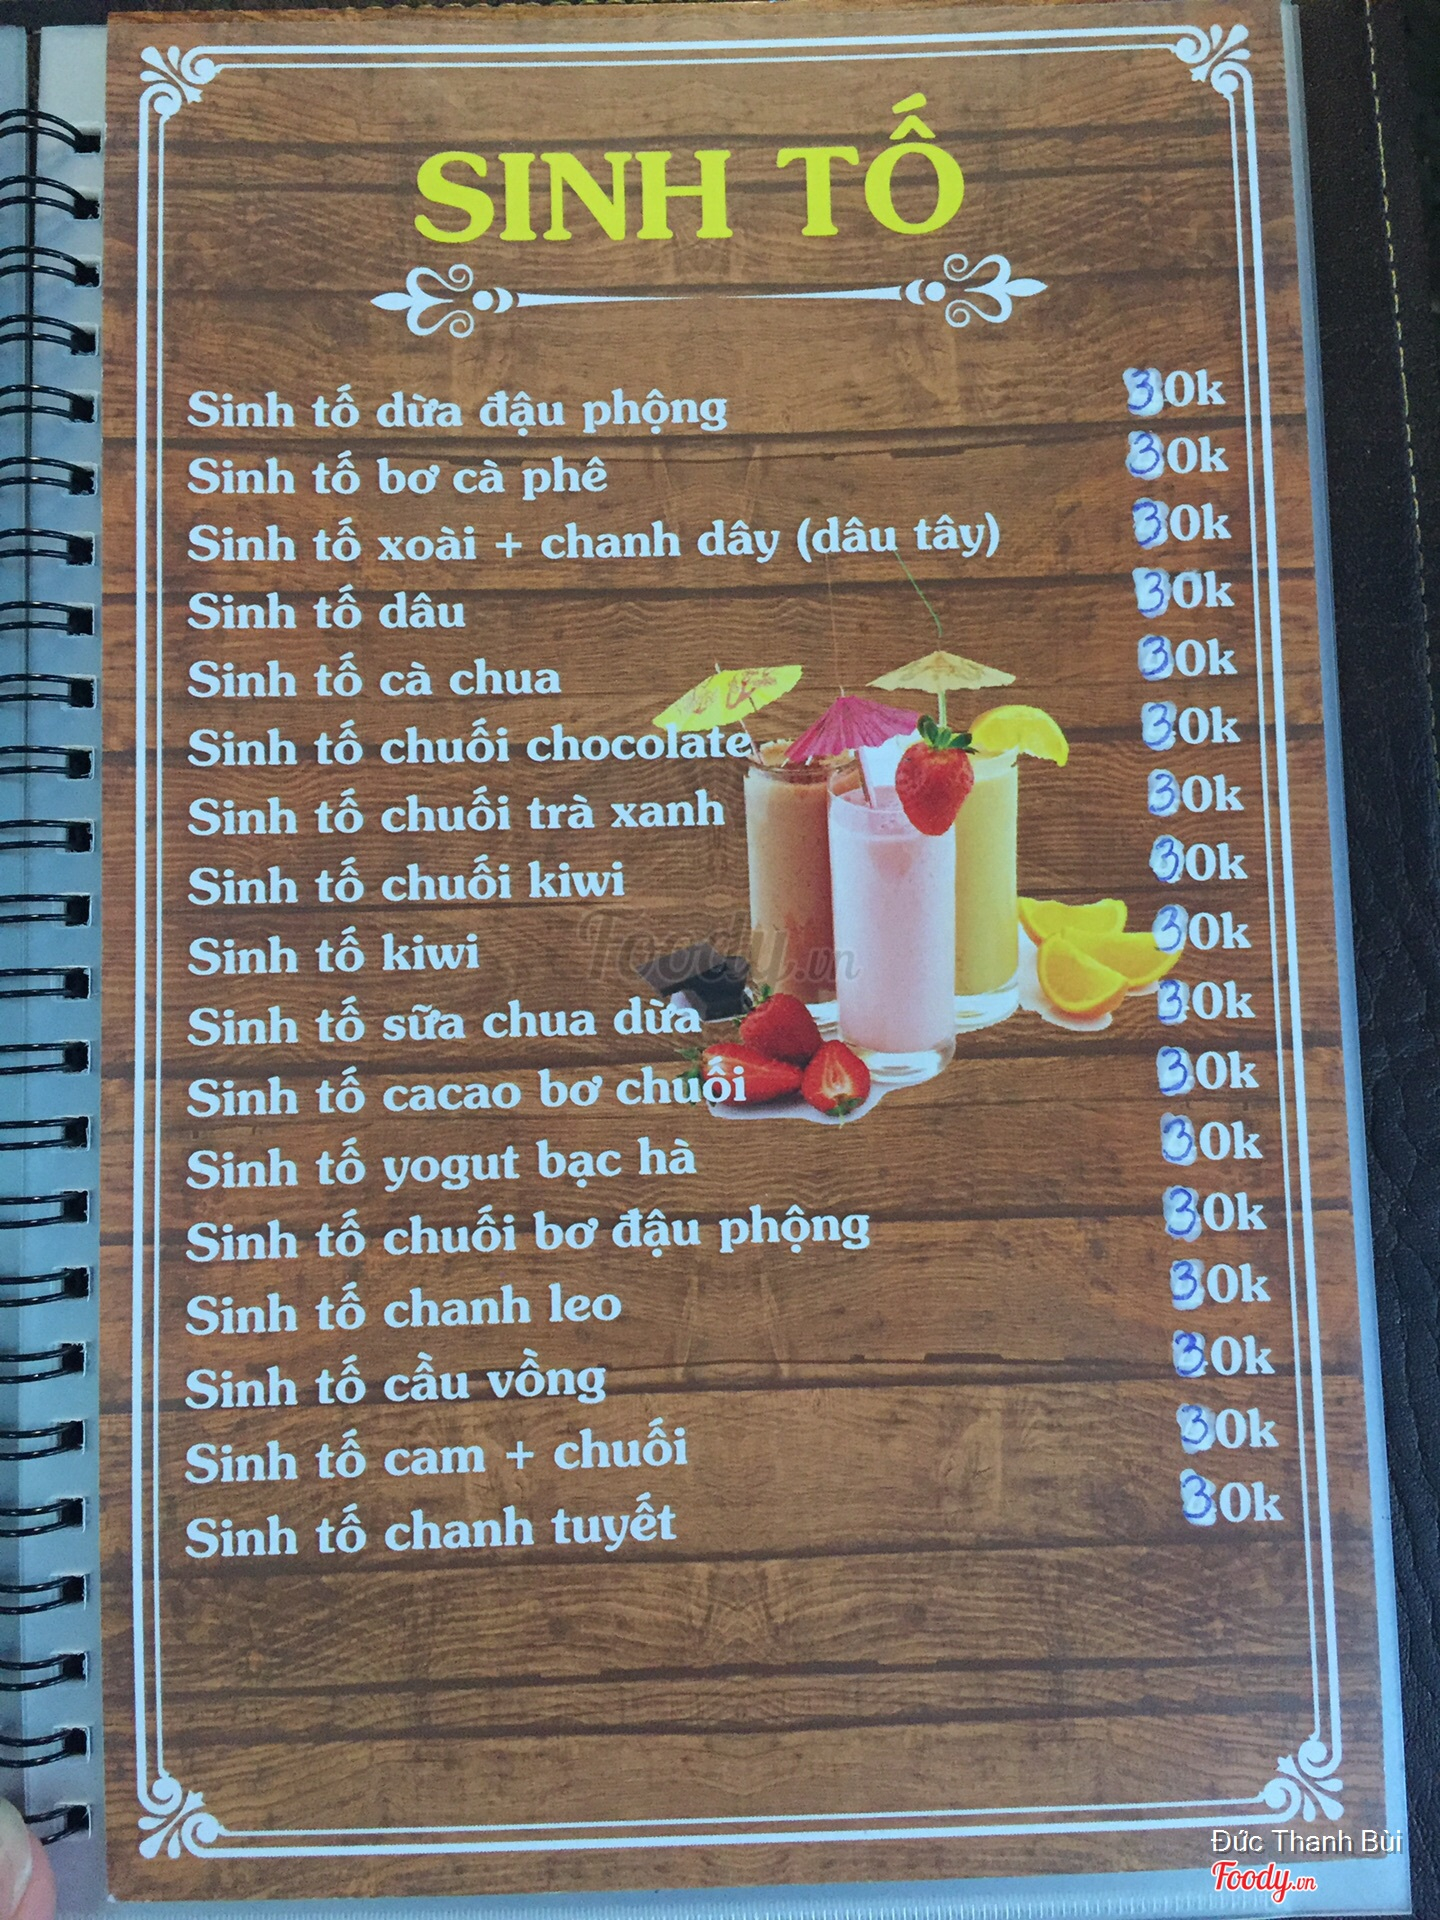 SINH TỐ
Sinh tố dừa đậu phộng 30k
Sinh tố bơ cà phê 30k
Sinh tố xoài + chanh dây (dâu tây) 30k
Sinh tố dâu 30k
Sinh tố cà chua 30k
Sinh tố chuối chocolate 30k
Sinh tố chuối trà xanh 30k
Sinh tố chuối kiwi 30k
Sinh tố kiwi 30k
Sinh tố sữa chua dừa 30k
Sinh tố cacao bơ chuối 30k
Sinh tố yogut bạc hà 30k
Sinh tố chuối bơ đậu phộng 30k
Sinh tố chanh leo 30k
Sinh tố cầu vồng 30k
Sinh tố cam + chuối 30k
Sinh tố chanh tuyết 30k
Foody.vn
Đức Thanh Bùi
Foody.vn